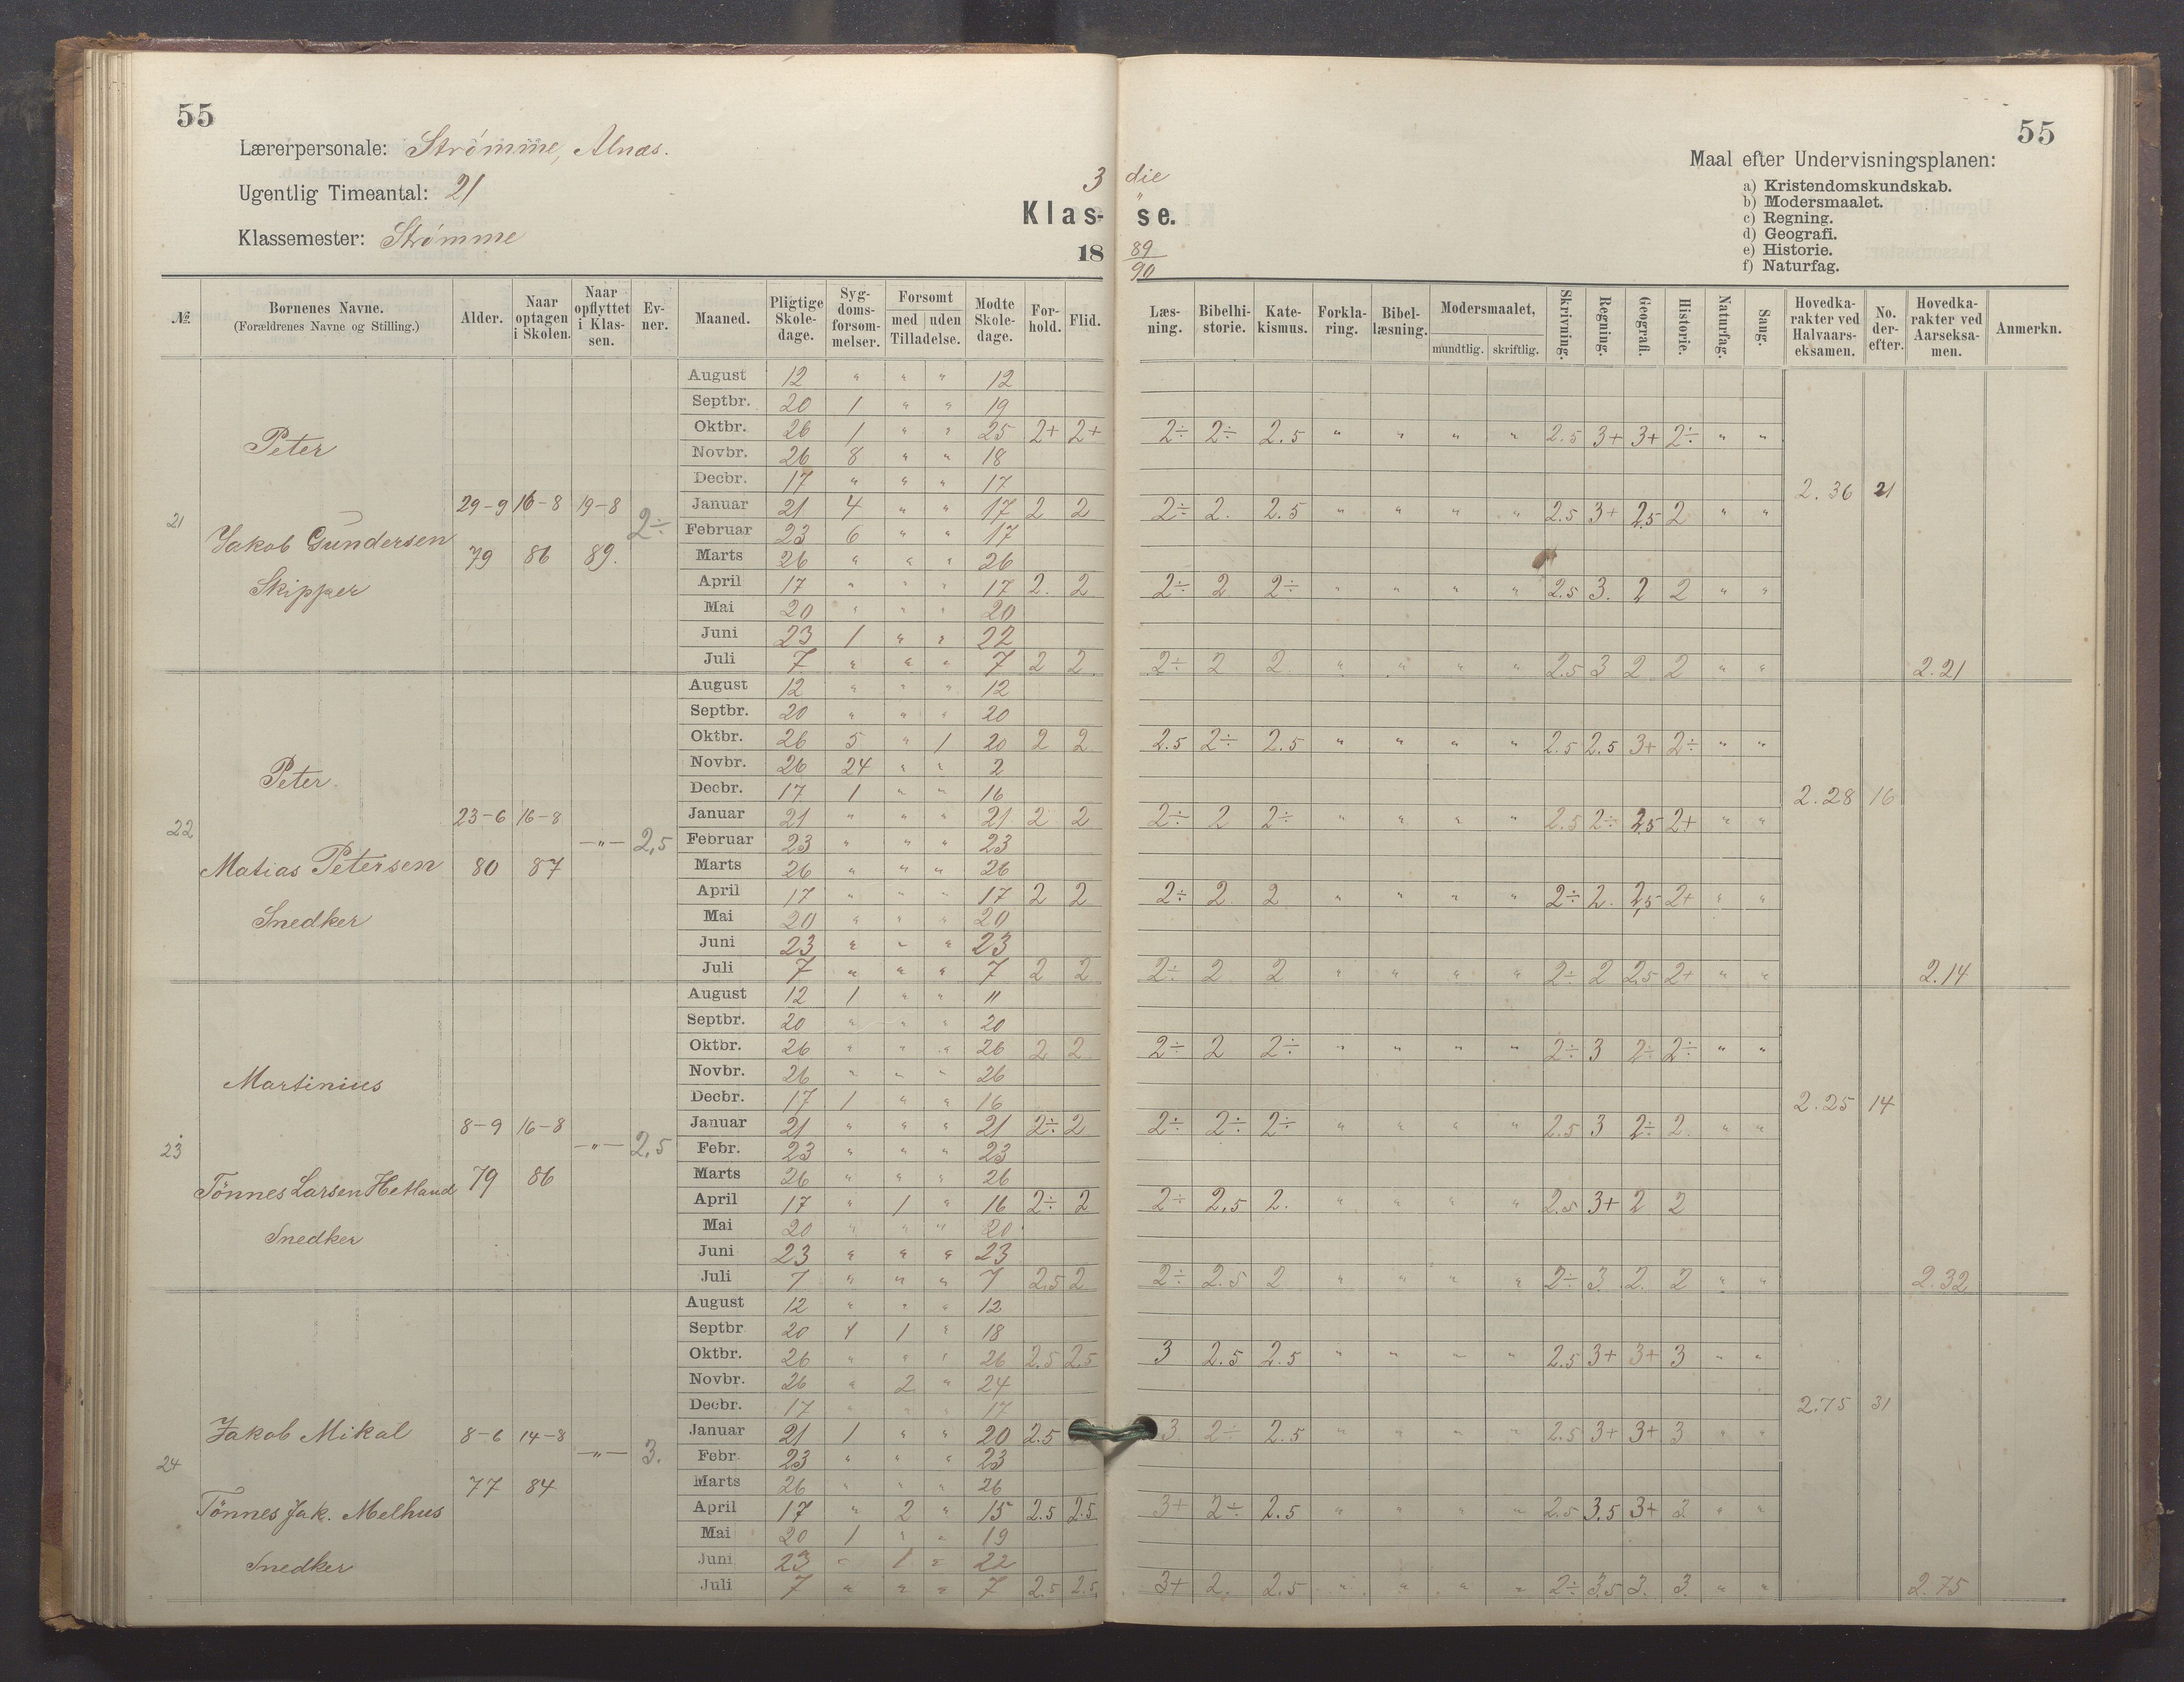 55
Lærerpersonale: Strømme, Alnæs.
Ugentlig Timeantal: 21
Klassemester: Strømme
3 die
Klas- se.
18 89/90
55
Maal efter Undervisningsplanen:
a) Kristendomskundskab.
b) Modersmaalet.
c) Regning.
d) Geografi.
e) Historie.
f) Naturfag.
№ | Bornenes Navne. (Forældrenes Navne og Stilling.) | Alder. | Naar optagen i Skolen. | Naar opflyttet i Klassen. | Evner. | Maaned. | Pligtige Skoledage. | Sygdomsforsommelser. | Forsomt med uden Tilladelse. | Modte Skoledage. | Forhold. | Flid. | Læsning. | Bibelhistorie. | Katekismus. | Forklaring. | Bibellæsning. | Modersmaalet, mundtlig. skriftlig. | Skrivning. | Regning. | Geografi. | Historie. | Naturfag. | Sang. | Hovedkarakter ved Halvaarseksamen. | No. derefter. | Hovedkarakter ved Aarseksamen. | Anmerkn.
21 Peter
Jakob Gundersen
Skipper
29-9 79 16-8 86 19-8 89. 2÷
August 12 " " " 12
Septbr. 20 1 " " 19
Oktbr. 26 1 " " 25 2+ 2+ 2÷ 2÷ 2.5 " " " " 2.5 3+ 3+ 2÷ " "
Novbr. 26 8 " " 18
Decbr. 17 " " " 17
2.36 21
Januar 21 4 " " 17 2 2 2÷ 2. 2.5 " " " " 2.5 3+ 2.5 2 " "
Februar 23 6 " " 17
Marts 26 " " " 26
April 17 " " " 17 2. 2 2÷ 2 2÷ " " " " 2.5 3. 2 2 " "
Mai 20 " " " 20
Juni 23 1 " " 22
Juli 7 " " " 7 2 2 2÷ 2 2 " " " " 2.5 3 2 2 " " 2.21
22 Peter
Matias Petersen
Snedker
23-6 80 16-8 87 -"- 2,5
August 12 " " " 12
Septbr. 20 " " " 20
Oktbr. 26 5 " 1 20 2 2 2.5 2÷ 2.5 " " " " 2.5 2.5 3+ 2÷ " "
Novbr. 26 24 " " 2
Decbr. 17 1 " " 16
2.28 16
Januar 21 " " " 21 2 2 2÷ 2 2÷ " " " " 2.5 2÷ 2.5 2+ " "
Februar 23 " " " 23
Marts 26 " " " 26
April 17 " " " 17 2 2 2÷ 2. 2 " " " " 2÷ 2. 2,5 2+ " "
Mai 20 " " " 20
Juni 23 " " " 23
Juli 7 " " " 7 2 2 2÷ 2 2 " " " " 2÷ 2 2.5 2+ " " 2.14
23 Martinius
Tönnes Larsen Hetland
Snedker
8-9 79 16-8 86 -"- 2,5
August 12 1 " " 11
Septbr. 20 " " " 20
Oktbr. 26 " " " 26 2 2 2÷ 2 2÷ " " " " 2÷ 3 2÷ 2÷ " "
Novbr. 26 " " " 26
Decbr. 17 1 " " 16
2.25 14
Januar 21 " " " 21 2÷ 2 2÷ 2÷ 2÷ " " " " 2.5 3 2÷ 2. " "
Febr. 23 " " " 23
Marts 26 " " " 26
April 17 " 1 " 16 2÷ 2 2÷ 2,5 2. " " " " 2.5 3+ 2 2
Mai 20 " " " 20
Juni 23 " " " 23
Juli 7 " " " 7 2.5 2 2÷ 2.5 2 " " " " 2÷ 3. 2. 2 " " 2.32
24 Jakob Mikal
Tönnes Jak. Melhus
Snedker
8-6 77 14-8 84 -"- 3.
August 12 " " " 12
Septbr 20 1 1 " 18
Oktbr. 26 " " " 26 2.5 2.5 3 2.5 2.5 " " " " 2.5 3+ 3+ 3 " "
Novbr. 26 " 2 " 24
Decbr. 17 " " " 17
2.75 31
Januar 21 1 " " 20 2.5 3. 2÷ 2.5 " " " " 2.5 3+ 3+ 3 " "
Febr. 23 " " " 23
Marts 26 " " " 26
April 17 " 2 " 15 2.5 2.5 3+ 2÷ 2.5 " " " " 2.5 3.5 3+ 3 " "
Mai 20 1 " " 19
Juni 23 " 1 " 22
Juli 7 " " " 7 2.5 2.5 3+ 2. 2.5 " " " " 2÷ 3.5 3. 3. " " 2.75